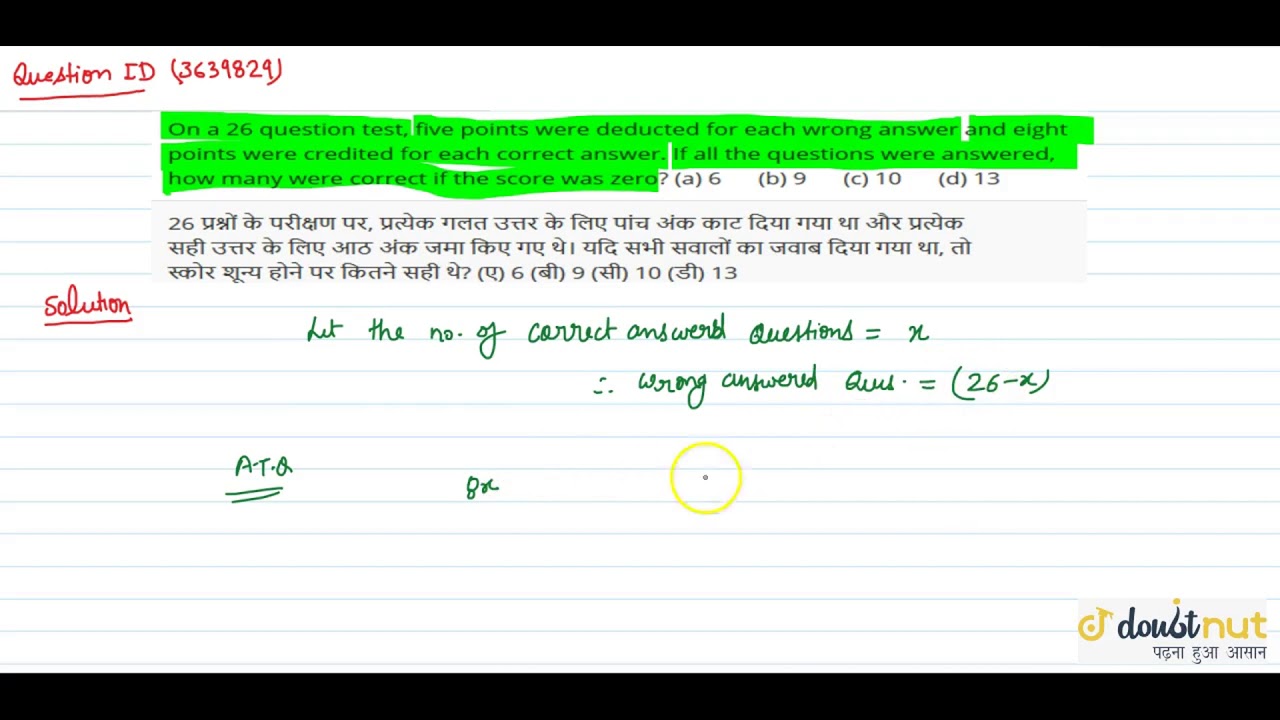 Question ID (3639829)
On a 26 question test, five points were deducted for each wrong answer and eight
points were credited for each correct answer. If all the questions were answered,
how many were correct if the score was zero? (a) 6 (b) 9 (c) 10 (d) 13
26 प्रश्नों के परीक्षण पर, प्रत्येक गलत उत्तर के लिए पांच अंक काट दिया गया था और प्रत्येक
सही उत्तर के लिए आठ अंक जमा किए गए थे। यदि सभी सवालों का जवाब दिया गया था, तो
स्कोर शून्य होने पर कितने सही थे? (ए) 6 (बी) 9 (सी) 10 (डी) 13
Solution
Let the no. of correct answerd Questions = x
∴ wrong answered Ques. = (26-x)
A.T.Q
8x
doubtnut
पढ़ना हुआ आसान